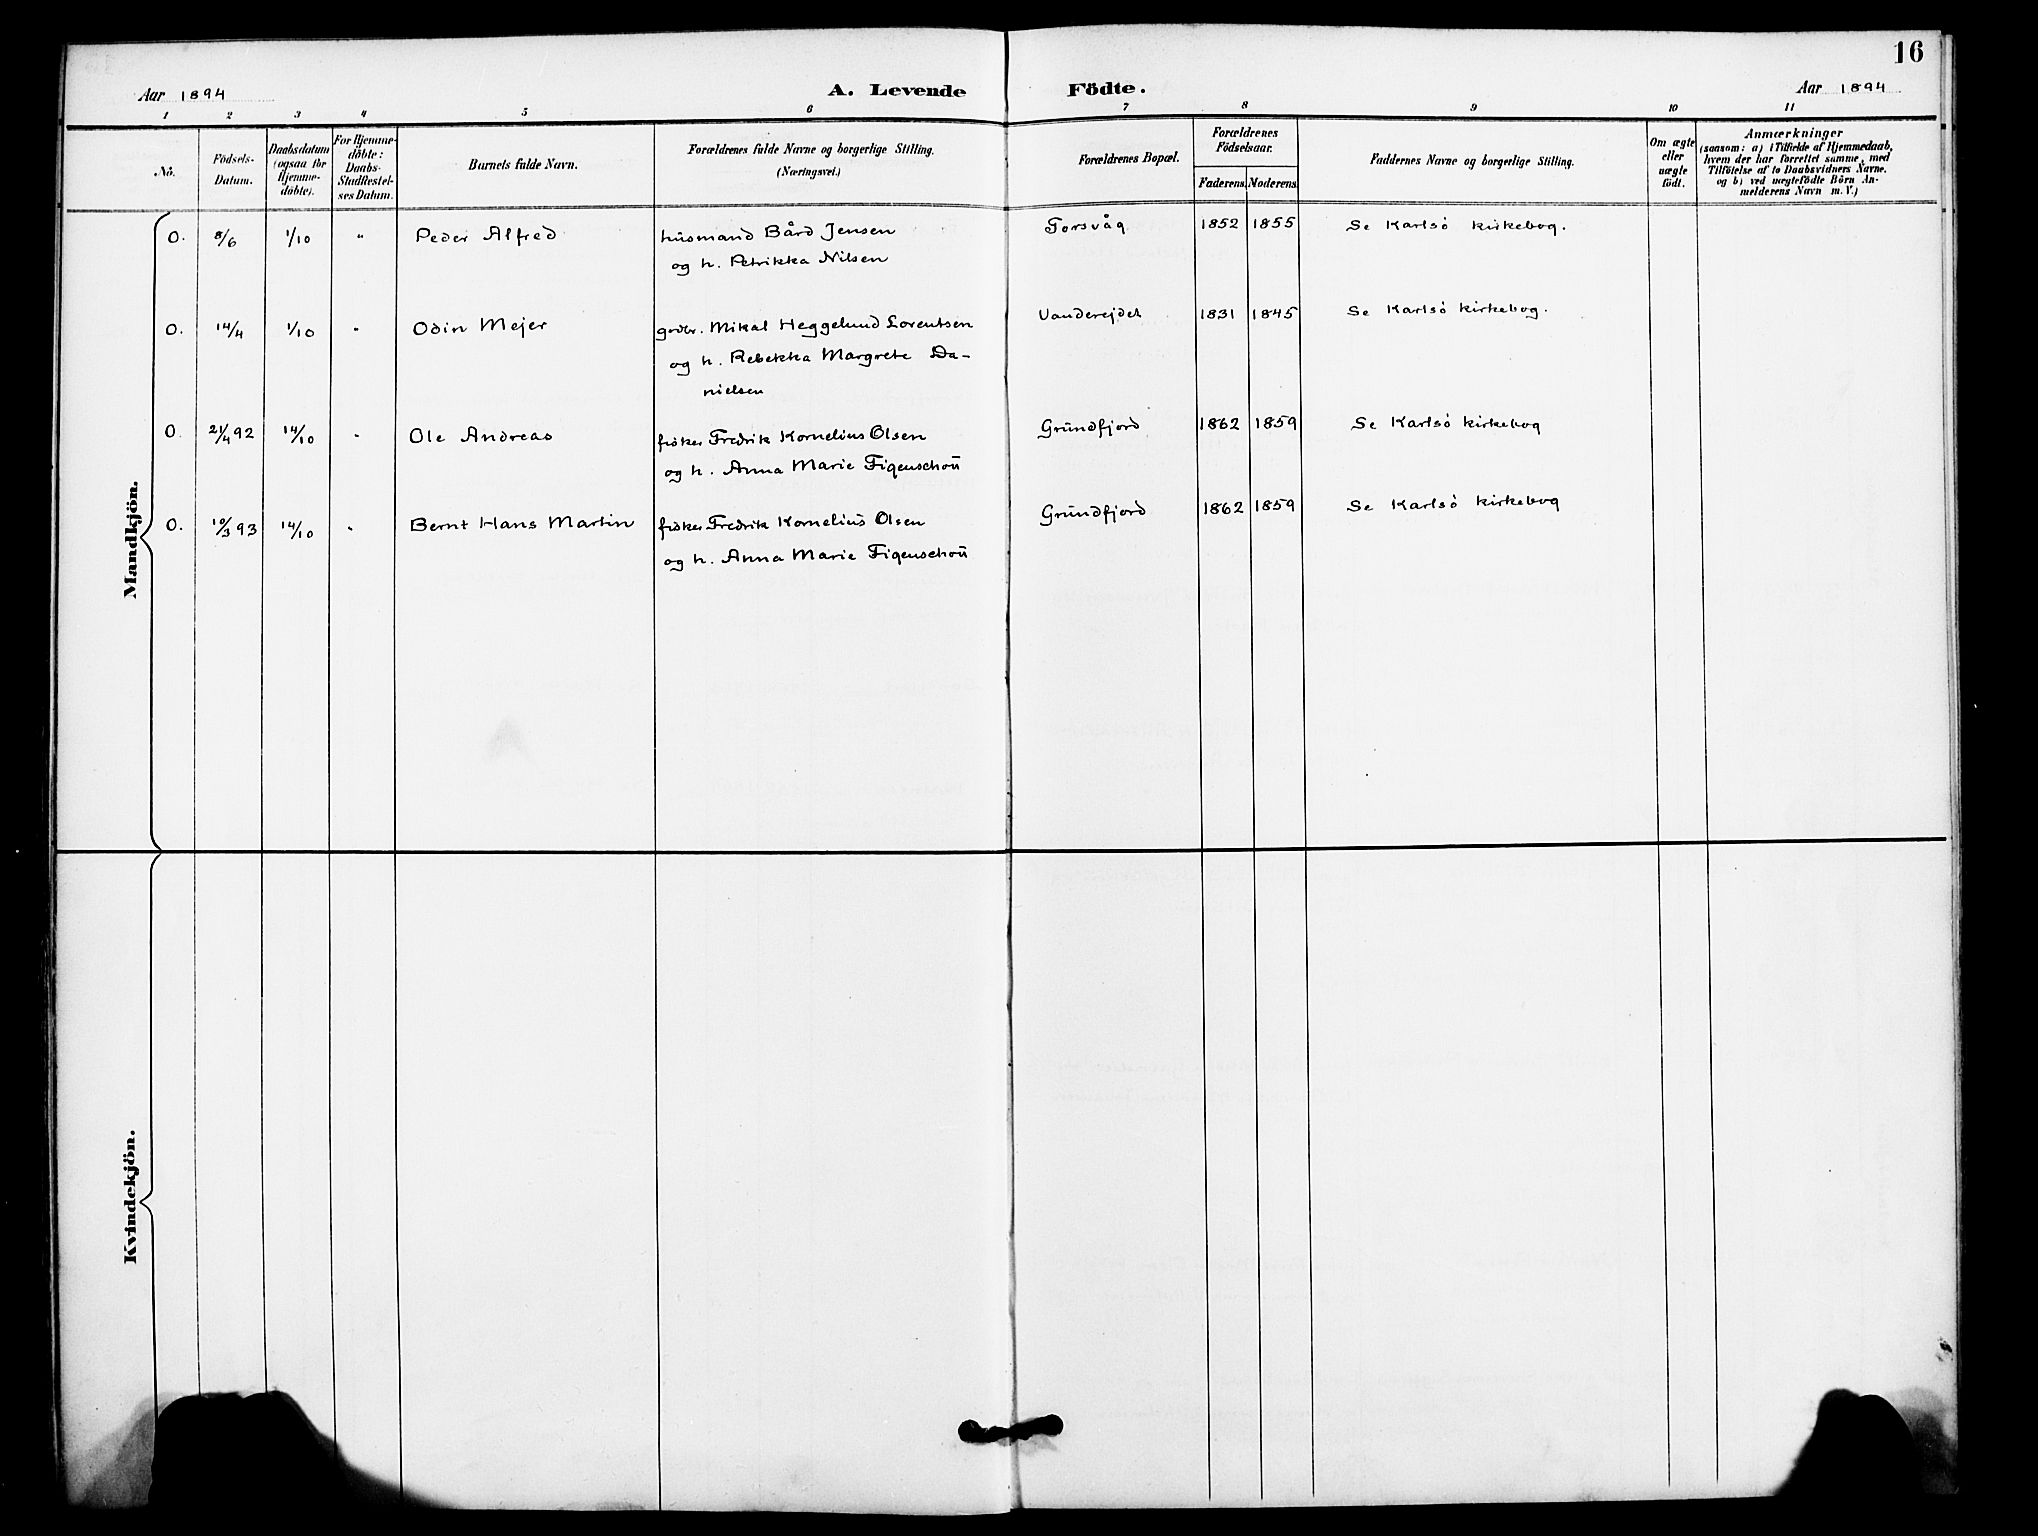 16
Aar 1894
A. Levende Födte.
Aar 1894
1 2 3 4 5 6 7 8 9 10 11
No.
Födsels-Datum.
Daabsdatum (ogsaa for Hjemme-döbte).
For Hjemme-döbte: Daabs-Stadfæstel-ses Datum.
Barnets fulde Navn.
Forældrenes fulde Navne og borgerlige Stilling.
(Næringsvei.)
Forældrenes Bopæl.
Forældrenes Födselsaar.
Faderens. Moderens.
Faddernes Navne og borgerlige Stilling.
Om ægte eller uægte födt.
Anmærkninger
(saasom: a) i Tilfælde af Hjemmedaab,
hvem der har forrettet samme, med
Tilföielse af to Daabsvidners Navne.
og b) ved uægtefödte Börn An-
melderens Navn m. V.)
Mandkjön.
O. 8/6 1/10 " Peder Alfred husmand Bård Jensen Torsvåg 1852 1855 Se Karlsö kirkebog.
og h. Petrikka Nilsen
O. 14/4 1/10 " Odin Mejer grdbr. Mikal Heggelund Lorentsen Vanderejdet 1831 1845 Se Karlsö kirkebog.
og h. Rebekka Margrete Da-
nielsen
O. 21/4 92 14/10 " Ole Andreas fisker Fredrik Kornelius Olsen Grundfjord 1862 1859 Se Karlsö kirkebog
og h. Anna Marie Figenschou
O. 10/3 93 14/10 " Bernt Hans Martin fisker Fredrik Kornelius Olsen Grundfjord 1862 1859 Se Karlsö kirkebog
og h. Anna Marie Figenschou
Kvindekjön.